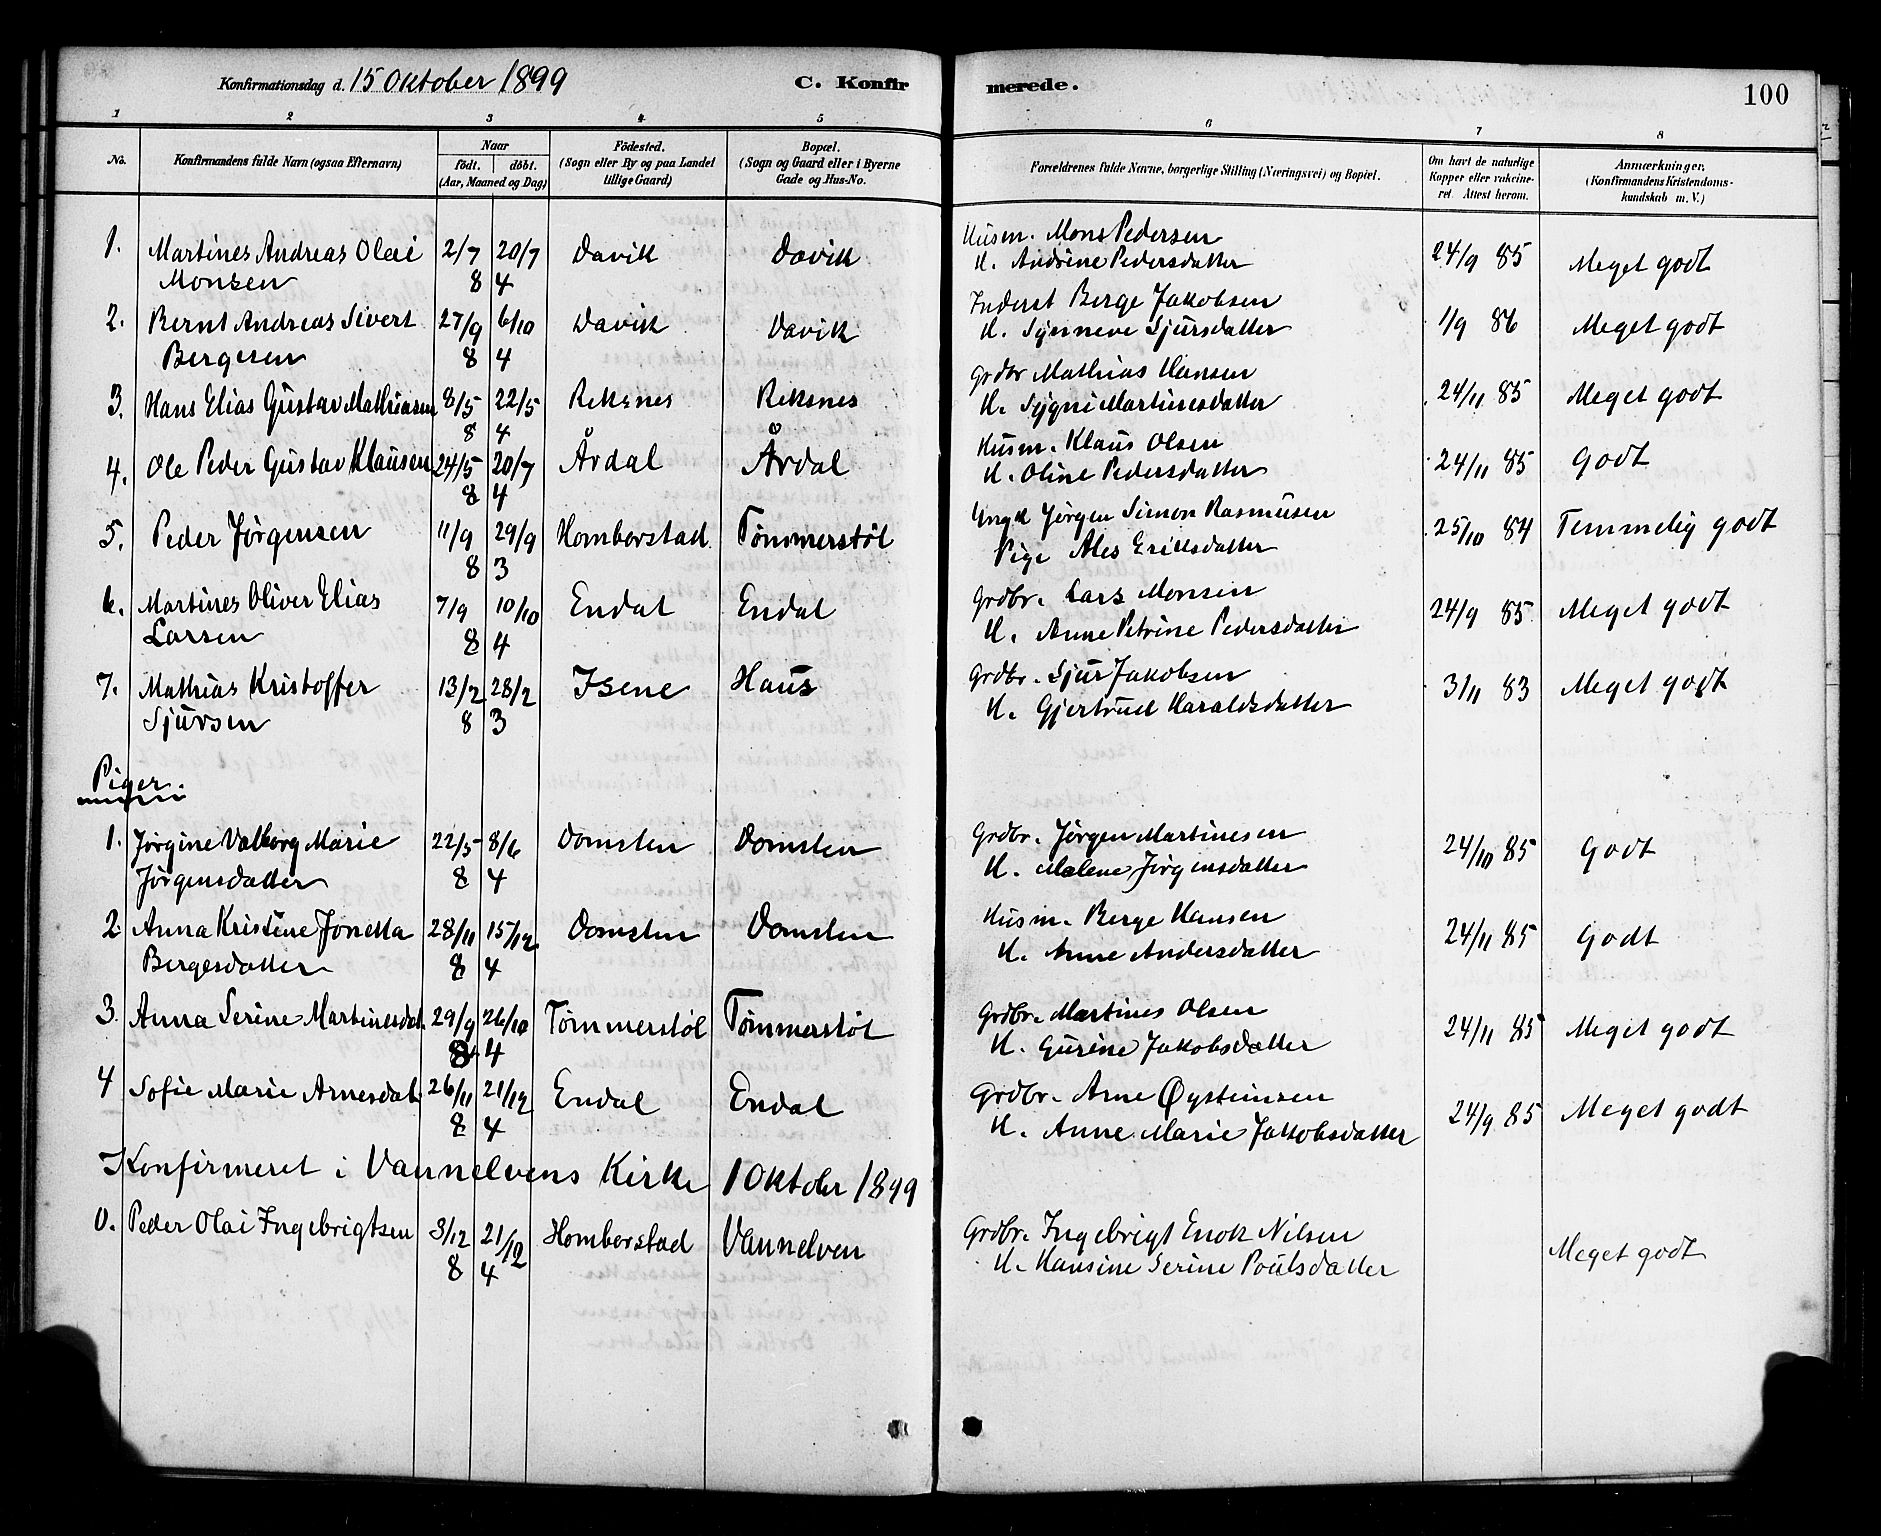 Konfirmationsdag d. 15 Oktober 1899 C. Konfir merede. 100
1 2 3 4 5 6 7 8
No. Konfirmandens fulde Navn (ogsaa Efternavn) Naar født. døbt. (Aar, Maaned og Dag) Fødested. (Sogn eller By og paa Landet tillige Gaard) Bopæl. (Sogn og Gaard eller i Byerne Gade og Hus-No. Forældrenes fulde Navne, borgerlige Stilling (Næringsvei) og Bopæl. Om havt de naturlige Kopper eller vakcineret. Attest herom. Anmærkninger. (Konfirmandens Kristendomskundskab m. V.)
1. Martines Andreas Olai 2/7 20/7 Davik Davik Husm. Mons Pedersen 24/9 85 Meget godt
Monsen 8 4 H. Andrine Pedersdatter
2. Bernt Andreas Sivert 27/9 6/10 Davik Davik Inderst Berge Jakobsen 1/9 86 Meget godt
Bergesen 8 4 H. Synneve Sjursdatter
3. Hans Elias Gustav Mathiasen 8/5 22/5 Reksnes Reksnes Grdbr Mathias Hansen 24/11 85 Meget godt
8 4 H. Sygni Martinesdatter
4. Ole Peder Gustav Klausen 24/5 20/7 Årdal Årdal Husm. Klaus Olsen 24/11 85 Godt
8 4 H. Oline Pedersdatter
5. Peder Jørgensen 11/9 29/9 Homborstad Tømmerstøl Ungk Jørgen Simon Rasmusen 25/10 84 Temmelig godt
8 3 Pige Ales Eriksdatter
6. Martines Oliver Elias 7/9 10/10 Endal Endal Grdbr. Lars Monsen 24/9 85 Meget godt
Larsen 8 4 H. Anne Petrine Pedersdatter
7. Mathias Kristoffer 13/2 28/2 Isene Haus Grdbr. Sjur Jakobsen 3/11 83 Meget godt
Sjursen 8 3 H. Gjertrud Haraldsdatter
Piger.
1. Jørgine Valborg Marie 22/5 8/6 Domsten Domsten Grdbr. Jørgen Martinesen 24/10 85 Godt
Jørgensdatter 8 4 H. Malene Jørgensdatter
2 Anna Kristine Jonetta 28/11 15/12 Domsten Domsten Husm. Berge Hansen 24/11 85 Godt
Bergesdatter 8 4 H. Anne Andersdatter
3. Anna Serine Martinesdat. 29/9 26/10 Tømmerstøl Tømmerstøl Grdbr. Martines Olsen 24/11 85 Meget godt
8 4 H. Gurine Jakobsdatter
4 Sofie Marie Arnesdat. 26/11 21/12 Endal Endal Grdbr. Arne Øysteinsen 24/9 85 Meget godt
8 4 H. Anne Marie Jakobsdatter
Konfirmeret i Vannelvens Kirke 1 Oktober 1899
0. Peder Olai Ingebrigtsen 3/12 21/12 Homborstad Vannelven Grdbr. Ingebrigt Enok Nilsen Meget godt
8 4 H. Hansine Serine Poulsdatter